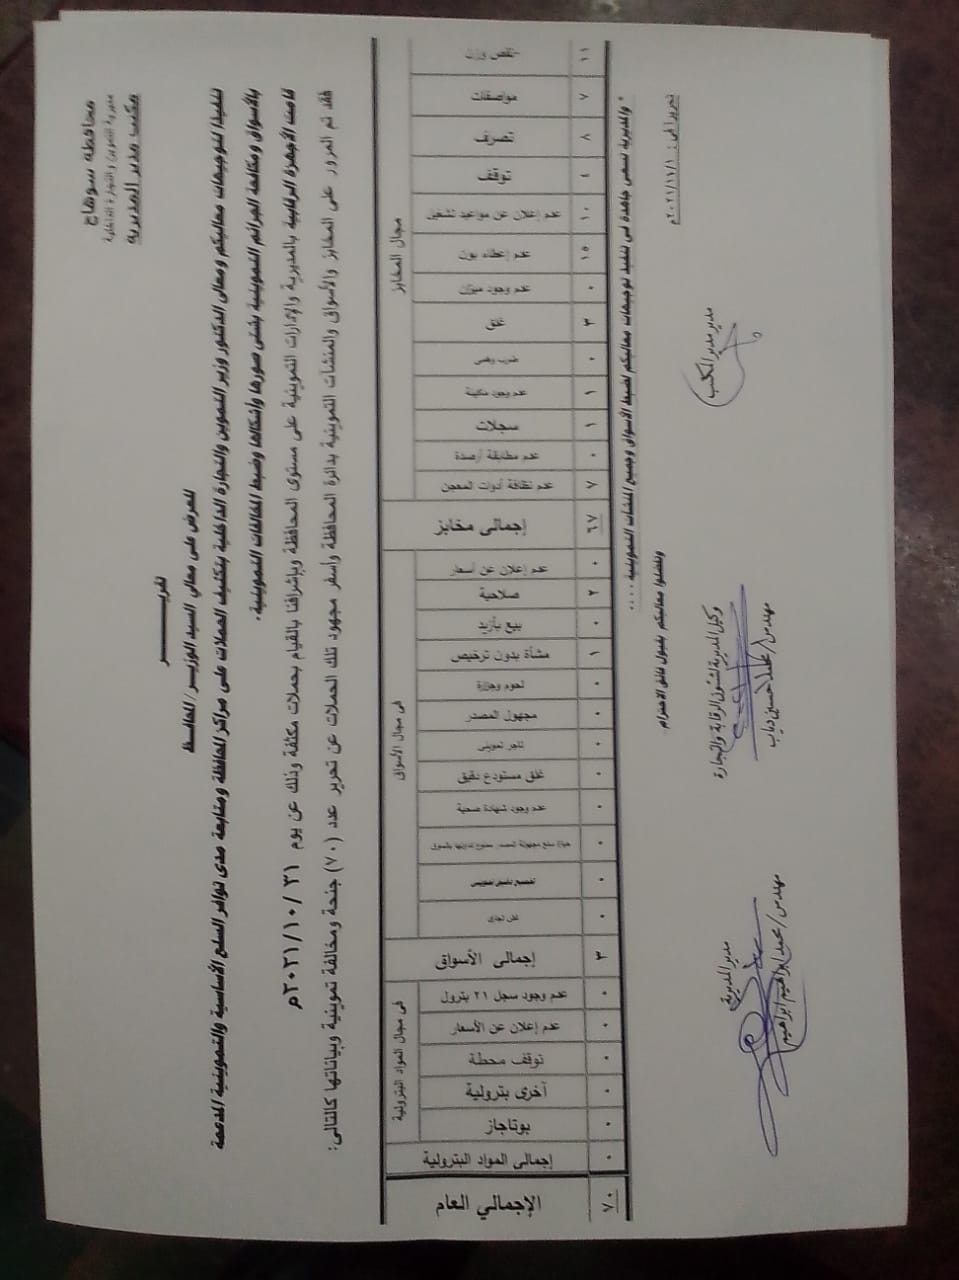 محافظة سوهاج
مديرية التموين والتجارة الداخلية
مكتب مدير المديرية
تقريـــــــــر
للعرض على معالي السيد الوزيـــر / المحافـــظ
تنفيذا لتوجيهات معاليكم ومعالى الدكتور وزير التموين والتجارة الداخلية بتكثيف الحملات على مراكز المحافظة ومتابعة مدى توافر السلع الأساسية والتموينية المدعمة
بالأسواق ومكافحة الجرائم التموينية بشتى صورها وأشكالها وضبط المخالفات التموينية.
قامت الأجهزة الرقابية بالمديرية والإدارات التموينية على مستوى المحافظة وبإشرافنا بالقيام بحملات مكثفة وذلك عن يوم ٢٠٢١/١٠/٣١م
فقد تم المرور على المخابز والأسواق والمنشآت التموينية بدائرة المحافظة وأسفر مجهود تلك الحملات عن تحرير عدد (٧٠) جنحة ومخالفة تموينية وبياناتها كالتالى:
مجال المخابز
نقص وزن ١١
مواصفات ٧
تصرف ٨
توقف ٤
عدم إعلان عن مواعيد تشغيل ١٠
عدم إعطاء بون ١٥
عدم وجود ميزان ٠
غلق ٣
٠
عدم وجود مكينة ١
سجلات ١
عدم مطابقة أرصدة ٠
عدم نظافة أدوات المعجن ٧
إجمالى مخابز ٦٧
فى مجال الأسواق
عدم إعلان عن أسعار ٠
صلاحية ٢
بيع بأزيد ٠
منشأة بدون ترخيص ١
لحوم وجزارة ٠
مجهول المصدر ٠
تاجر تموينى ٠
غلق مستودع دقيق ٠
عدم وجود شهادة صحية ٠
حيازة سلع مجهولة المصدر ٠
٠
٠
إجمالى الأسواق ٣
فى مجال المواد البترولية
عدم وجود سجل ٢١ بترول ٠
عدم إعلان عن الأسعار ٠
توقف محطة ٠
أخرى بترولية ٠
بوتاجاز ٠
إجمالى المواد البترولية ٠
الإجمالي العام ٧٠
* والمديرية تسعى جاهدة فى تنفيذ توجيهات معاليكم لضبط الأسواق وجميع المنشآت التموينية ....
وتفضلوا معاليكم بقبول فائق الاحترام
تحريرا في: ٢٠٢١/١١/١م
مدير مدير المكتب
وكيل المديرية لشئون الرقابة والتجارة
مهندس/ محمد الحسينى دياب
مدير المديرية
مهندس/ محمد ابراهيم ابراهيم